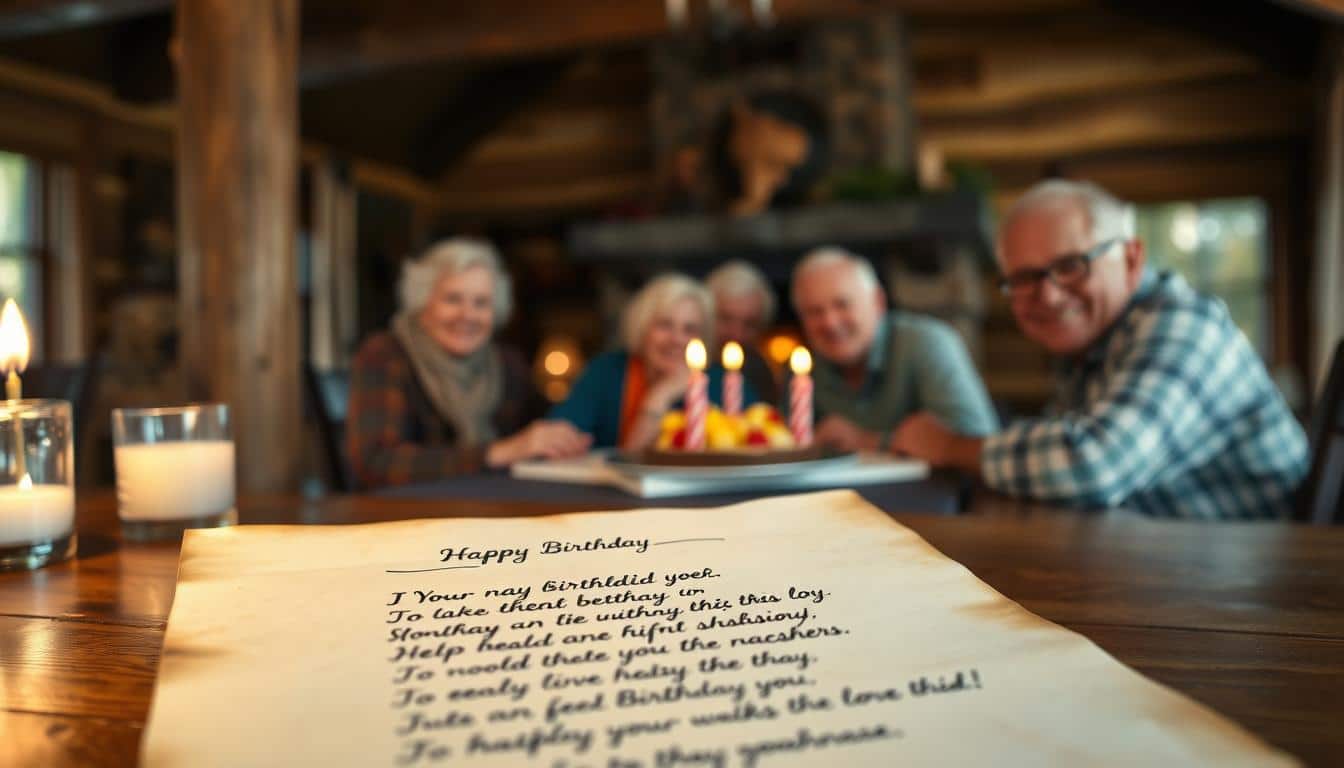 Happy Birthday
I Your nay Birthldid yoek.
To lake thent betthay un
Slonthay an tie uuithny this thss loy.
Help heald ane hifnt shshsiony.
To noold thete you the nacshers.
To eealy live hedsy the thay.
Jute an feel Birthday you.
To hatfplay your walhs the love thid!
to they